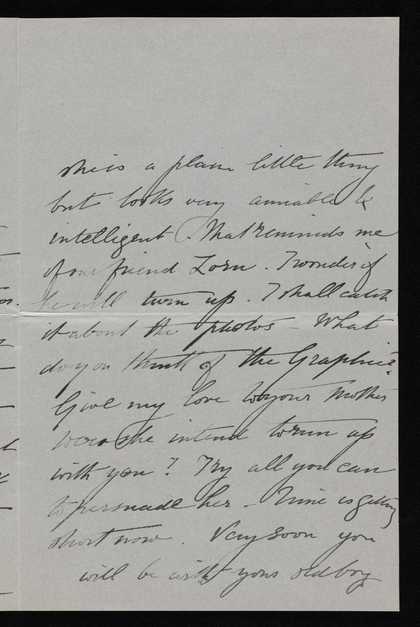 she is a plain little thing
but looks very amiable &
intelligent. That reminds me
of our friend Zorn. I wonder if
he will turn up. I shall catch
it about the photos - What
do you think of the Graphic?
Give my love to your Mother
does she intend to run up
with you? Try all you can
to persuade her - Time is getting
short now. Very soon you
will be with your old boy